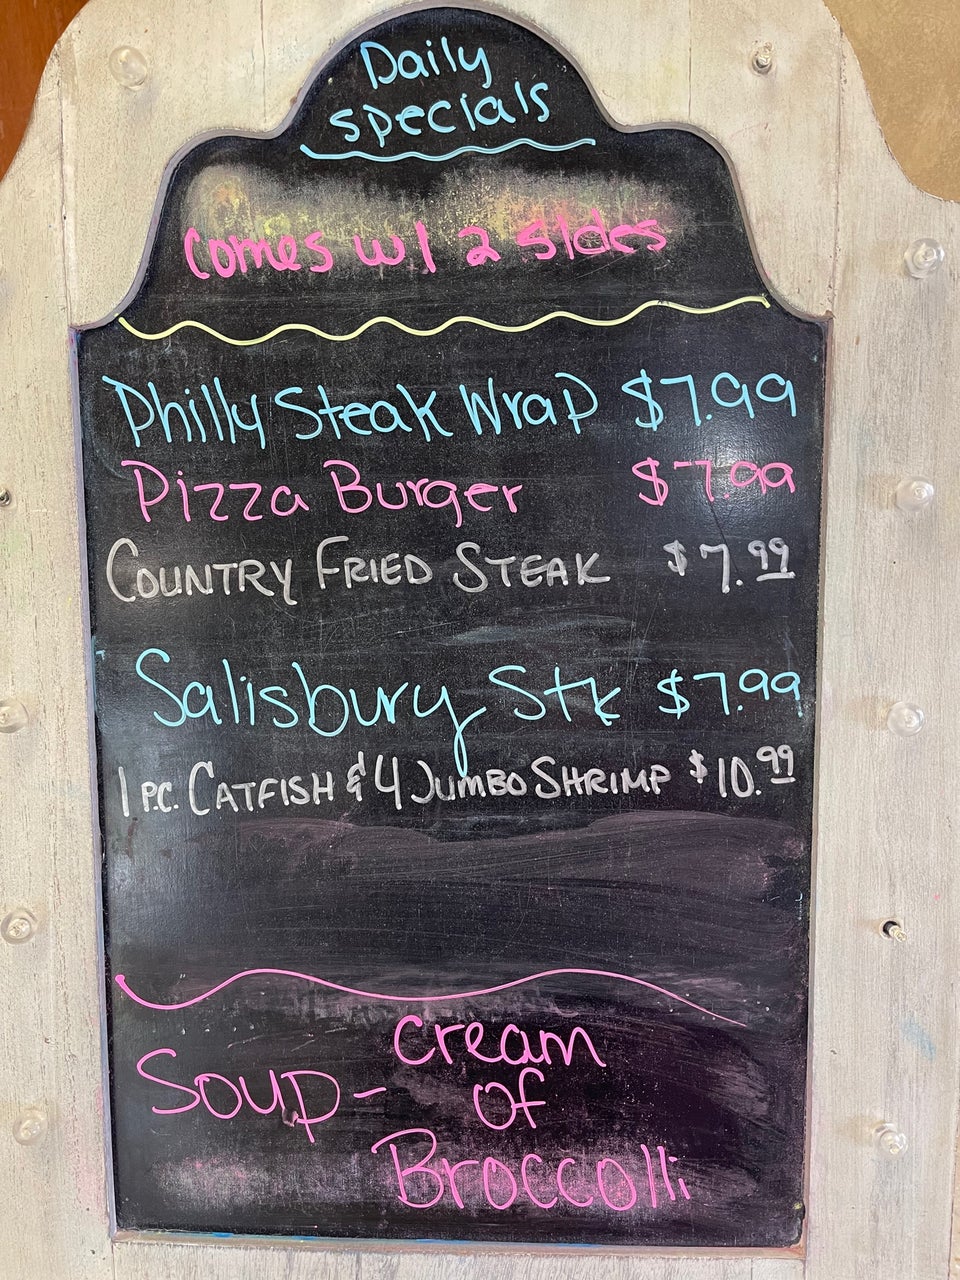 Daily
specials
comes w/ 2 sides
Philly Steak Wrap $7.99
Pizza Burger $7.99
COUNTRY FRIED STEAK $7.99
Salisbury Stk $7.99
1 PC. CATFISH & 4 JUMBO SHRIMP $10.99
Soup - cream
of
Broccolli